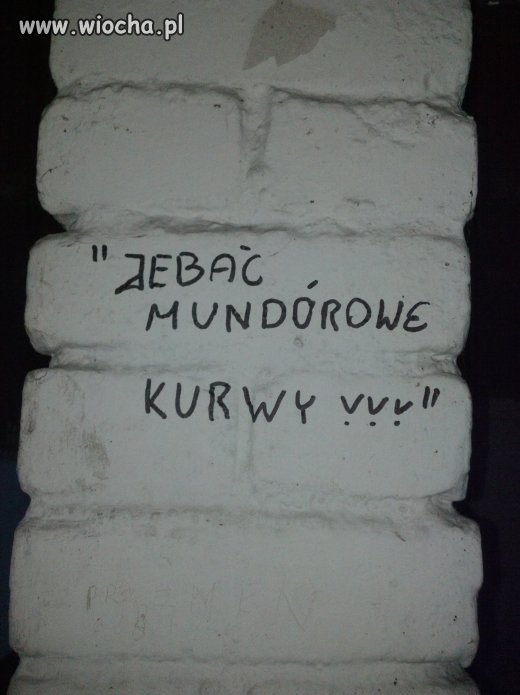 www.wiocha.pl
"JEBAĆ
MUNDÓROWE
KURWY !!!"